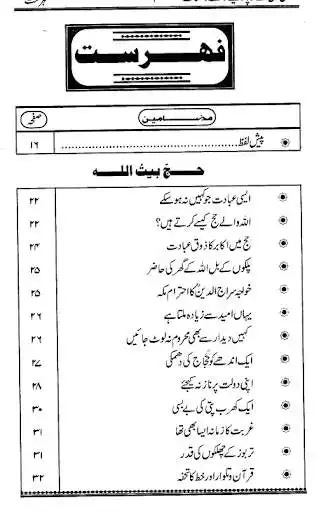 فہرست
صفحہ مضامین
پیش لفظ ۱۶
حج بیت اللہ
ایسی عبادت جو کہیں نہ ہو سکے ۲۲
اللہ والے حج کیسے کرتے ہیں؟ ۲۲
حج میں اکابر کا ذوق عبادت ۲۴
پلکوں کے بل اللہ کے گھر کی حاضری ۲۵
خواجہ سراج الدینؒ کا احترام مکہ ۲۵
یہاں امید سے زیادہ ملتا ہے ۲۶
کہیں دیدار سے بھی محروم نہ لوٹ جائیں ۲۶
ایک اندھے کو حجاج کی دھمکی ۲۷
اپنی دولت پر ناز نہ کیجئے ۲۸
ایک کھرب پتی کی بے بسی ۳۰
غربت کا زمانہ ایسا بھی تھا ۳۱
تربوز کے چھلکوں کی قدر ۳۱
قرآن و تلوار اور خط کا تحفہ ۳۲